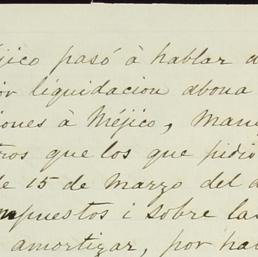 éjico pasó à hablar d
or liquidacion abona
iones à Méjico, Man
ros que los que pidio
e 15 de Marzo del a
mpuestos i sobre las
amortizar, por ha